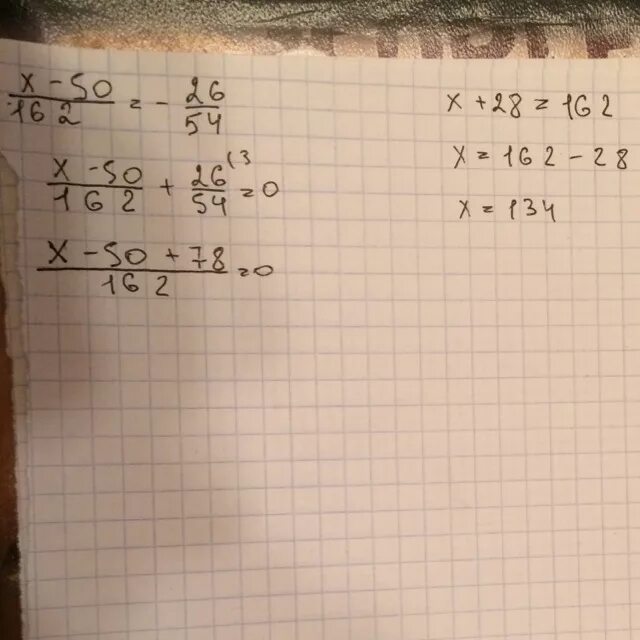 x - 50 / 162 = - 26 / 54
x - 50 / 162 + 26 (3 / 54 = 0
x - 50 + 78 / 162 = 0
x + 28 = 162
x = 162 - 28
x = 134